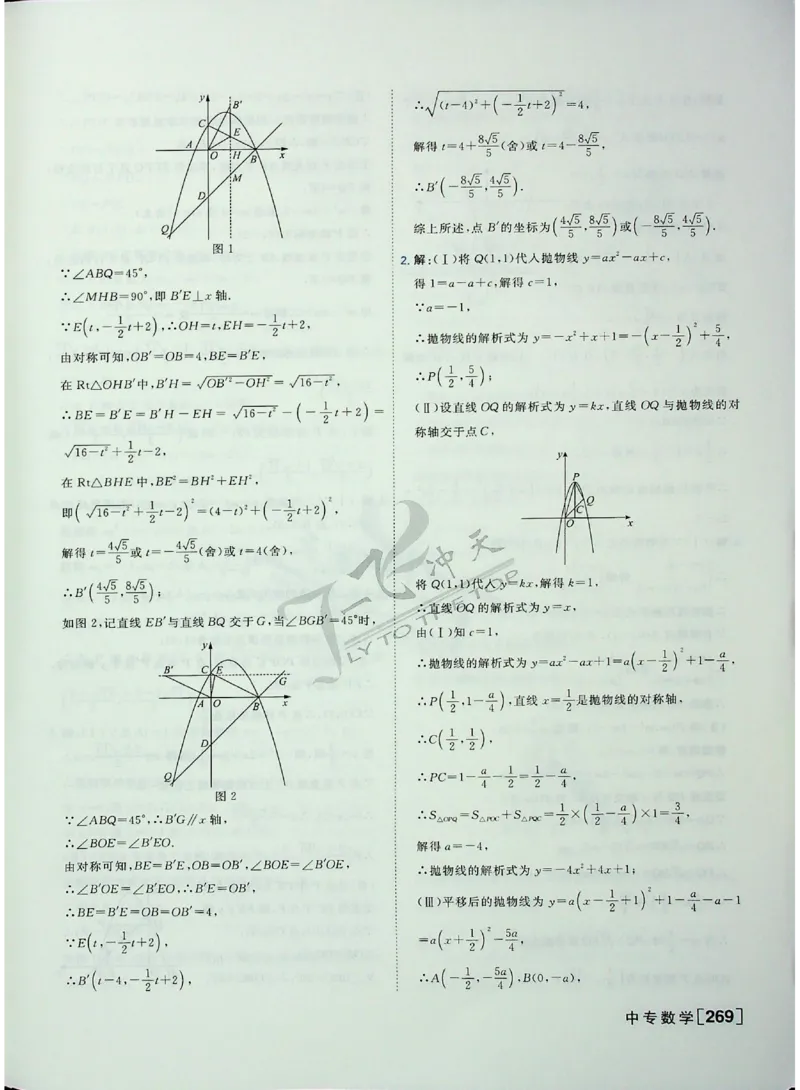 y
B′
C
E
A
O
H
B
x
M
D
Q
图1
∵∠ABQ=45°,
∴∠MHB=90°,即 B′E⊥x 轴.
∵E(t,-1/2t+2),∴OH=t,EH=-1/2t+2,
由对称可知,OB′=OB=4,BE=B′E,
在 Rt△OHB′中,B′H=√(OB′²-OH²)=√(16-t²),
∴BE=B′E=B′H-EH=√(16-t²)-(-1/2t+2)=
√(16-t²)+1/2t-2,
在 Rt△BHE 中,BE²=BH²+EH²,
即(√(16-t²)+1/2t-2)²=(4-t)²+(-1/2t+2)²,
解得 t=4√5/5或 t=-4√5/5(舍)或 t=4(舍),
∴B′(4√5/5,8√5/5);
如图 2,记直线 EB′与直线 BQ 交于 G,当∠BGB′=45°时,
y
B′
C
E
G
A
O
B
x
D
Q
图2
∵∠ABQ=45°,∴B′G∥x 轴,
∴∠BOE=∠B′EO.
由对称可知,BE=B′E,OB=OB′,∠BOE=∠B′OE,
∴∠B′OE=∠B′EO,∴B′E=OB′,
∴BE=B′E=OB=OB′=4,
∵E(t,-1/2t+2),
∴B′(t-4,-1/2t+2),
∴√((t-4)²+(-1/2t+2)²)=4,
解得 t=4+8√5/5(舍)或 t=4-8√5/5,
∴B′(-8√5/5,4√5/5).
综上所述,点 B′的坐标为(4√5/5,8√5/5)或(-8√5/5,4√5/5).
2.解:(Ⅰ)将 Q(1,1)代入抛物线 y=ax²-ax+c,
得 1=a-a+c,解得 c=1,
∵a=-1,
∴抛物线的解析式为 y=-x²+x+1=-(x-1/2)²+5/4,
∴P(1/2,5/4);
(Ⅱ)设直线 OQ 的解析式为 y=kx,直线 OQ 与抛物线的对
称轴交于点 C,
y
P
Q
C
O
x
将 Q(1,1)代入 y=kx,解得 k=1,
∴直线 OQ 的解析式为 y=x,
由(Ⅰ)知 c=1,
∴抛物线的解析式为 y=ax²-ax+1=a(x-1/2)²+1-a/4,
∴P(1/2,1-a/4),直线 x=1/2是抛物线的对称轴,
∴C(1/2,1/2),
∴PC=1-a/4-1/2=1/2-a/4,
∴S△OPQ=S△POC+S△PQC=1/2×(1/2-a/4)×1=3/4,
解得 a=-4,
∴抛物线的解析式为 y=-4x²+4x+1;
(Ⅲ)平移后的抛物线为 y=a(x-1/2+1)²+1-a/4-a-1
=a(x+1/2)²-5a/4,
∴A(-1/2,-5a/4),B(0,-a),
一飞冲天
FLY TO THE TOP
中专数学[269]